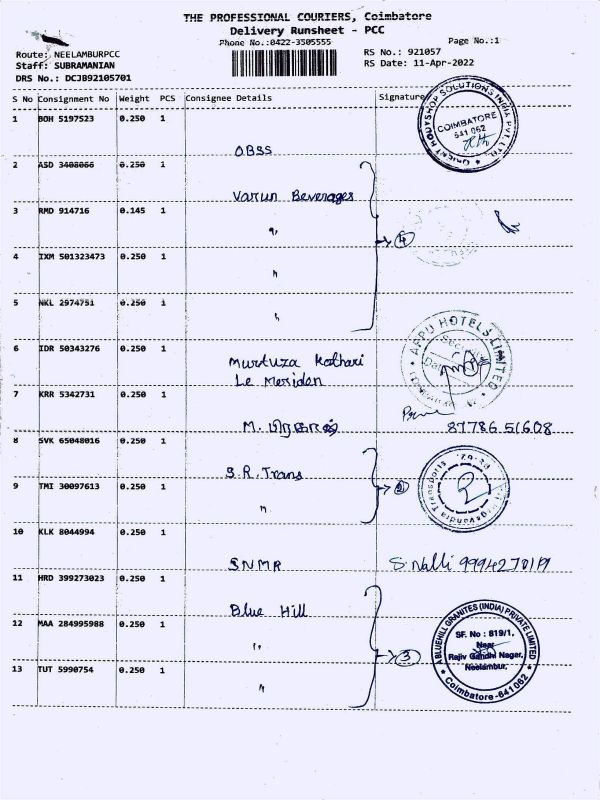 THE PROFESSIONAL COURIERS, Coimbatore
Delivery Runsheet - PCC
Phone No.:0422-3505555
Page No.:1
Route: NEELAMBURPCC
RS No.: 921057
Staff: SUBRAMANIAN
RS Date: 11-Apr-2022
DRS No.: DCJB92105701
S No Consignment No Weight PCS Consignee Details Signature
1 BOH 5197523 0.250 1
OBSS
ORIENT HOUYSHOP SOLUTIONS INDIA PVT. LTD.
COIMBATORE
641 062
2 ASD 3408066 0.250 1
Varun Beverages
3 RMD 914716 0.145 1
"
4
4 IXM 501323473 0.250 1
"
5 NKL 2974751 0.250 1
"
6 IDR 50343276 0.250 1
Murtuza Kothari
Le Meriden
APPU HOTELS LIMITED
7 KRR 5342731 0.250 1
87786 51608
8 SVK 65048016 0.250 1
S.R. Trans
9 TMI 30097613 0.250 1
"
2
10 KLK 8044994 0.250 1
SNMR
S. Nalli 9994270119
11 HRD 399273023 0.250 1
Blue Hill
12 MAA 284995988 0.250 1
"
3
A BLUEHILL GRANITES (INDIA) PRIVATE LIMITED
SF. No : 819/1,
Near
Rajiv Gandhi Nagar,
Neelambur,
Coimbatore-641 062
13 TUT 5990754 0.250 1
"